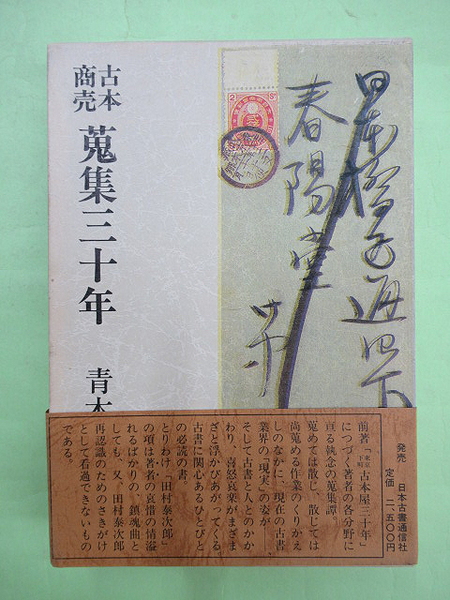 古本
商売
蒐集三十年
青木
日本橋区通四丁
春陽堂
発売 日本古書通信社
定価 二、五〇〇円
前著「東京下町古本屋三十年」
につづく著者の各分野に
亘る執念の蒐集譚。
蒐めては散じ、散じては
尚蒐める作業のくりかえ
しのなかに、現在の古書
業界の〝現実〟の姿が――
そして古書と人とのかか
わり、喜怒哀楽がまざま
ざと浮かびあがってくる。
古書に関心あるひとびと
の必読の書
とりわけ「田村泰次郎」
の項は著者の哀惜の情溢
れるばかりの、鎮魂曲と
しても、又、田村泰次郎
再認識のためのさきがけ
として看過できないもの
である。